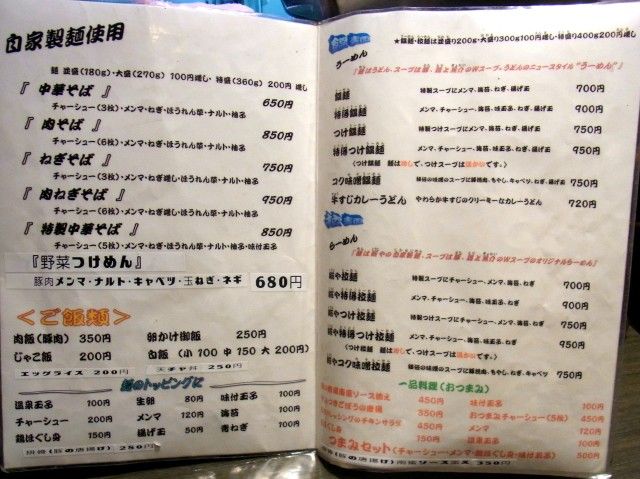 自家製麺使用
麺 並盛(180g)・大盛(270g) 100円増し・特盛(360g) 200円 増し
『 中華そば 』 650円
チャーシュー(3枚)・メンマ・ねぎ・ほうれん草・ナルト・柚子
『 肉そば 』 850円
チャーシュー(6枚)・メンマ・ねぎ・ほうれん草・ナルト・柚子
『 ねぎそば 』 750円
チャーシュー(3枚)・メンマ・ねぎ増し・ほうれん草・ナルト・柚子
『 肉ねぎそば 』 950円
チャーシュー(6枚)・メンマ・ねぎ増し・ほうれん草・ナルト・柚子
『 特製中華そば 』 850円
チャーシュー(5枚)・メンマ・ねぎ・ほうれん草・ナルト・柚子・味付玉子
『野菜つけめん』
豚肉・メンマ・ナルト・キャベツ・玉ねぎ・ネギ 680円
<ご飯類>
肉飯(豚肉) 350円 卵かけ御飯 250円
じゃこ飯 200円 白飯 (小100 中150 大200円)
エッグライス 200円 天チャ丼 250円
麺のトッピングに
温泉玉子 100円 生卵 80円 味付玉子 100円
チャーシュー 200円 メンマ 120円 海苔 100円
鶏ほぐし身 150円 揚げ玉 50円 青ねぎ 100円
(豚の唐揚げ) 280円
★饂麺・拉麺は並盛り200g・大盛り300g100円増し・特盛り400g200円増し
うーめん
『麺はうどん、スープは豚、鶏と魚介のWスープ。うどんのニュースタイル"うーめん"』
饂麺 特製スープにメンマ、海苔、ねぎ、揚げ玉 700円
特得饂麺 チャーシュー、メンマ、海苔、味玉子、ねぎ、揚げ玉 900円
つけ饂麺 特製つけスープにメンマ、海苔、ねぎ、揚げ玉 750円
特得つけ饂麺 チャーシュー、メンマ、海苔、味玉子、ねぎ、揚げ玉 950円
(つけ饂麺 麺は冷しで、つけスープは温かいです。)
コク味噌饂麺 特製の味噌のスープに豚挽肉、もやし、キャベツ、ねぎ、揚げ玉 750円
牛すじカレーうどん やわらか牛すじのクリーミーなカレーうどん 720円
らーめん
特製スープにチャーシュー、メンマ、海苔、ねぎ 700円
メンマ、チャーシュー、海苔、味玉子、ねぎ 900円
特製つけスープにチャーシュー、メンマ、海苔、ねぎ 750円
チャーシュー、メンマ、海苔、味玉子、ねぎ 950円
(つけ拉麺 麺は冷しで、つけスープは温かいです。)
750円
一品料理(おつまみ)
450円 味付玉子 100円
350円 おつまみチャーシュー(5枚) 450円
450円 メンマ 120円
150円 温泉玉子 100円
つまみセット(チャーシュー・メンマ・鶏ほぐし身・味付玉子) 500円
350円